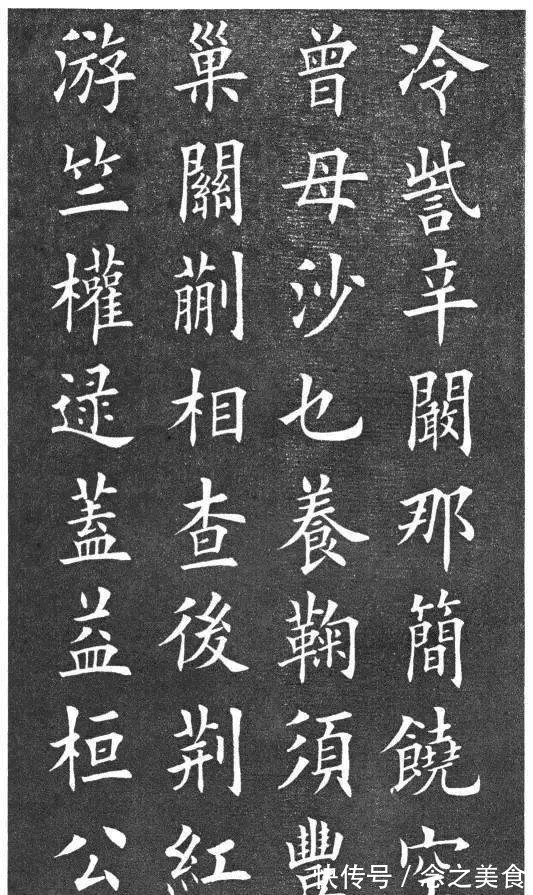 冷訾辛闞那簡饒空
曾母沙乜養鞠須豐
巢關蒯相查後荊紅
游竺權逯蓋益桓公
快传号 / 念之美食